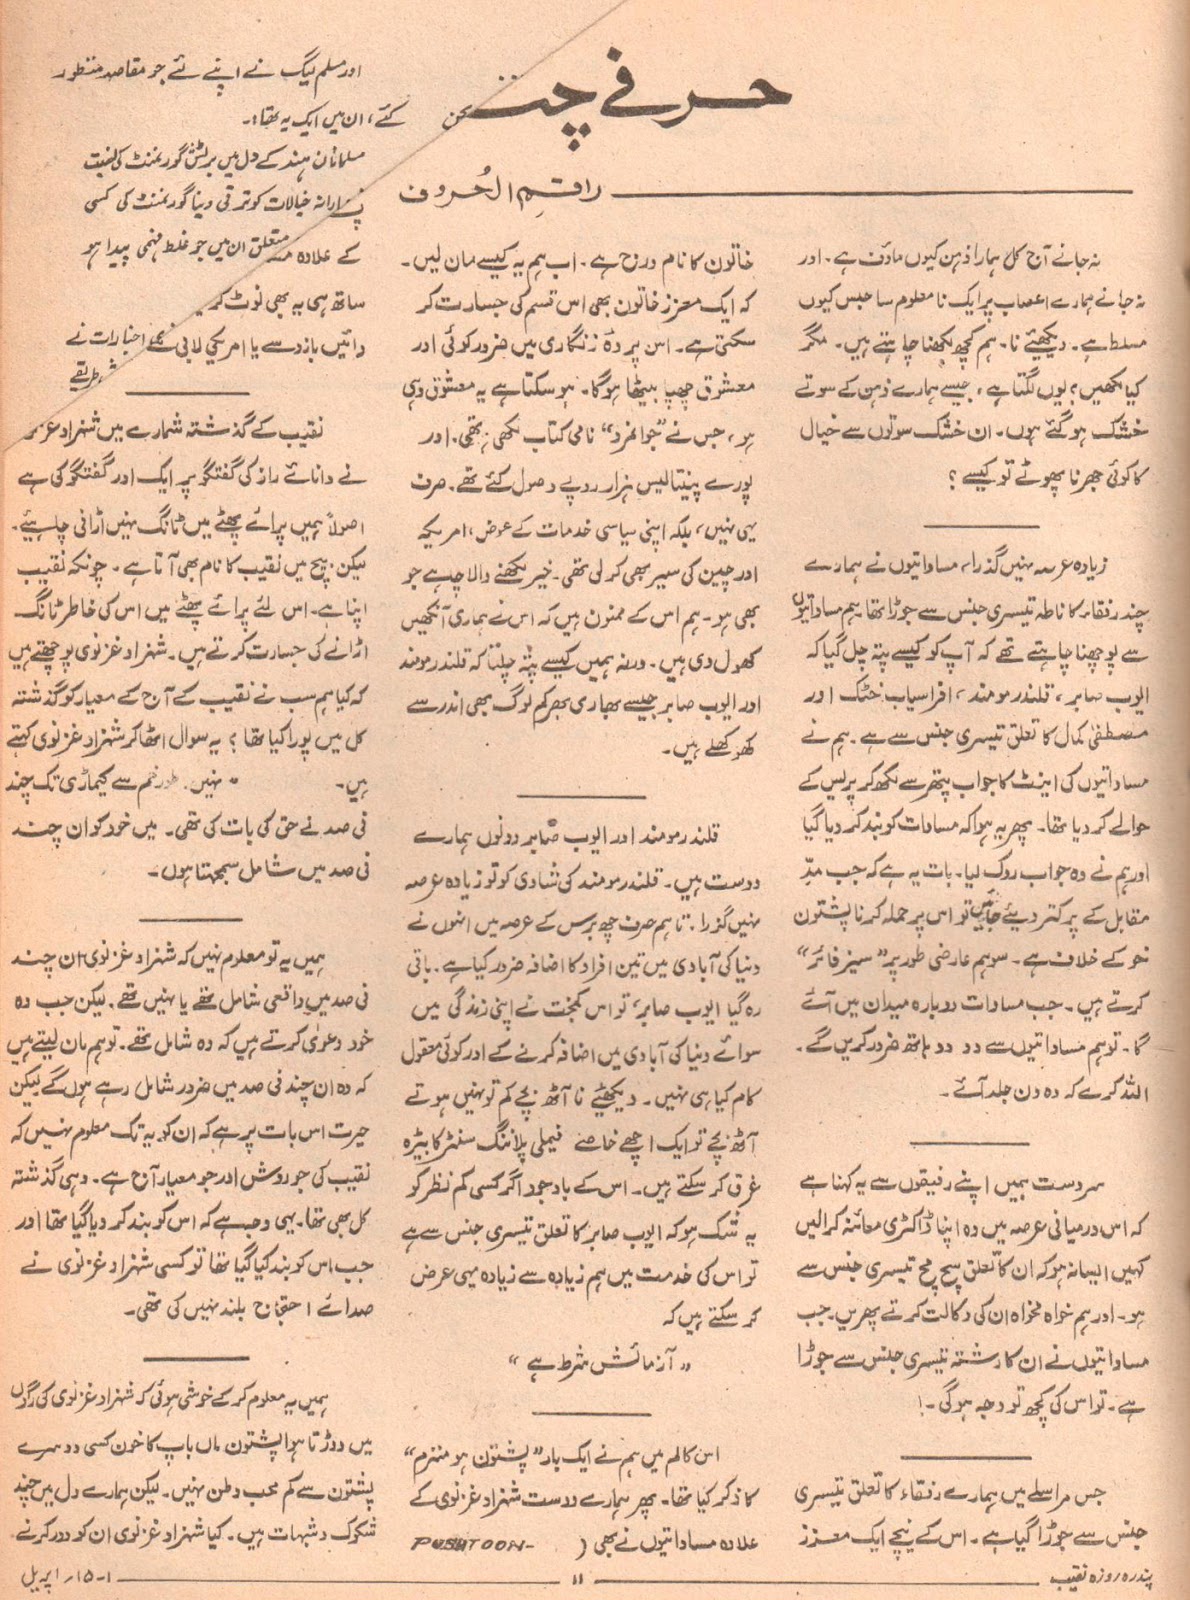 حرفے چند
راقم الحُروف
نہ جانے آج کل ہمارا ذہن کیوں ماؤف ہے۔ اور
نہ جانے ہمارے اعصاب پر ایک نامعلوم سا حبس کیوں
مسلط ہے۔ دیکھئیے نا۔ ہم کچھ لکھنا چاہتے ہیں۔ مگر
کیا لکھیں؟ یوں لگتا ہے، جیسے ہمارے ذہن کے سوتے
خشک ہو گئے ہوں۔ ان خشک سوتوں سے خیال
کا کوئی جھرنا پھوٹے تو کیسے؟
زیادہ عرصہ نہیں گذرا، مساواتیوں نے ہمارے
چند رفقاء کا ناطہ تیسری جنس سے جوڑا تھا۔ ہم مساواتیوں
سے پوچھنا چاہتے تھے کہ آپ کو کیسے پتہ چل گیا کہ
ایوب صابر، قلندر مومند، افراسیاب خٹک اور
مصطفیٰ کمال کا تعلق تیسری جنس سے ہے۔ ہم نے
مساواتیوں کی اینٹ کا جواب پتھر سے لکھ کر پریس کے
حوالے کر دیا تھا۔ پھر یہ ہوا کہ مساوات کو بند کر دیا گیا
اور ہم نے وہ جواب روک لیا۔ بات یہ ہے کہ جب مدِّ
مقابل کے پر کتر دیئے جائیں تو اس پر حملہ کرنا پشتون
خو کے خلاف ہے۔ سو ہم عارضی طور پر "سیز فائر"
کرتے ہیں۔ جب مساوات دوبارہ میدان میں آئے
گا۔ تو ہم مساواتیوں سے دو دو ہاتھ ضرور کریں گے۔
اللہ کرے کہ وہ دن جلد آئے۔
سرِدست ہمیں اپنے رفیقوں سے یہ کہنا ہے
کہ اس درمیانی عرصہ میں وہ اپنا ڈاکٹری معائنہ کرالیں
کہیں ایسا نہ ہو کہ ان کا تعلق سچ مچ تیسری جنس سے
ہو۔ اور ہم خواہ مخواہ ان کی وکالت کرتے پھریں۔ جب
مساواتیوں نے ان کا رشتہ تیسری جنس سے جوڑا
ہے۔ تو اس کی کچھ تو وجہ ہوگی۔!
جس مراسلے میں ہمارے رفقاء کا تعلق تیسری
جنس سے جوڑا گیا ہے۔ اس کے نیچے ایک معزز
خاتون کا نام درج ہے۔ اب ہم یہ کیسے مان لیں۔
کہ ایک معزز خاتون بھی اس قسم کی جسارت کر
سکتی ہے۔ اس پردۂ زنگاری میں ضرور کوئی اور
معشوق چھپا بیٹھا ہوگا۔ ہو سکتا ہے یہ معشوق وہی
ہو، جس نے "جوانمرد" نامی کتاب لکھی تھی۔ اور
پورے پینتالیس ہزار روپے وصول کئے تھے۔ صرف
یہی نہیں، بلکہ اپنی سیاسی خدمات کے عوض، امریکہ
اور چین کی سیر بھی کر لی تھی۔ خیر لکھنے والا چاہے جو
بھی ہو۔ ہم اس کے ممنون ہیں کہ اس نے ہماری آنکھیں
کھول دی ہیں۔ ورنہ ہمیں کیسے پتہ چلتا کہ قلندر مومند
اور ایوب صابر جیسے بھاری بھرکم لوگ بھی اندر سے
کھوکھلے ہیں۔
قلندر مومند اور ایوب صابر دونوں ہمارے
دوست ہیں۔ قلندر مومند کی شادی کو تو زیادہ عرصہ
نہیں گذرا۔ تاہم صرف چھ برس کے عرصہ میں انہوں نے
دنیا کی آبادی میں تین افراد کا اضافہ ضرور کیا ہے۔ باقی
رہ گیا ایوب صابر، تو اس کمبخت نے اپنی زندگی میں
سوائے دنیا کی آبادی میں اضافہ کرنے کے اور کوئی معقول
کام کیا ہی نہیں۔ دیکھئیے نا آٹھ بچے کم تو نہیں ہوتے
آٹھ بچے تو ایک اچھے خاصے فیملی پلاننگ سنٹر کا بیڑہ
غرق کر سکتے ہیں۔ اس کے باوجود اگر کسی کم نظر کو
یہ شک ہو کہ ایوب صابر کا تعلق تیسری جنس سے ہے
تو اس کی خدمت میں ہم زیادہ سے زیادہ یہی عرض
کر سکتے ہیں کہ
"آزمائش شرط ہے"
اس کالم میں ہم نے ایک بار "پشتون ہو منزم"
کا ذکر کیا تھا۔ پھر ہمارے دوست شہزاد غزنوی کے
علاوہ مساواتیوں نے بھی (PUSHTOON-
اور مسلم لیگ نے اپنے لئے جو مقاصد منظور
کئے، ان میں ایک یہ تھا:۔
مسلمانان ہند کے دل میں برٹش گورنمنٹ کی نسبت
خیالات کو ترقی دینا گورنمنٹ کی کسی
کے علاوہ متعلق ان میں جو غلط فہمی پیدا ہو
ساتھ ہی یہ بھی نوٹ کر
دائیں بازو سے یا امریکی لابی اخبارات نے
طریقے
نقیب کے گذشتہ شمارے میں شہزاد غز
نے دانائے راز کی گفتگو پر ایک اور گفتگو کی ہے
اصولاً ہمیں پرائے پھٹے میں ٹانگ نہیں اڑانی چاہیئے۔
لیکن بیچ میں نقیب کا نام بھی آتا ہے۔ چونکہ نقیب
اپنا ہے۔ اس لئے پرائے پھٹے میں اس کی خاطر ٹانگ
اڑانے کی جسارت کرتے ہیں۔ شہزاد غزنوی پوچھتے ہیں
کہ کیا ہم سب نے نقیب کے آج کے معیار کو گذشتہ
کل میں پورا کیا تھا؟ یہ سوال اٹھا کر شہزاد غزنوی کہتے
ہیں۔ "نہیں۔ طورخم سے کیماڑی تک چند
فی صد نے حق کی بات کی تھی۔ میں خود کو ان چند
فی صد میں شامل سمجھتا ہوں۔
ہمیں یہ تو معلوم نہیں کہ شہزاد غزنوی ان چند
فی صد میں واقعی شامل تھے یا نہیں تھے۔ لیکن جب وہ
خود دعویٰ کرتے ہیں کہ وہ شامل تھے۔ تو ہم مان لیتے ہیں
کہ وہ ان چند فی صد میں ضرور شامل رہے ہوں گے لیکن
حیرت اس بات پر ہے کہ ان کو یہ تک معلوم نہیں کہ
نقیب کی جو روش اور جو معیار آج ہے۔ وہی گذشتہ
کل بھی تھا۔ یہی وجہ ہے کہ اس کو بند کر دیا گیا تھا اور
جب اس کو بند کیا گیا تھا تو کسی شہزاد غزنوی نے
صدائے احتجاج بلند نہیں کی تھی۔
ہمیں یہ معلوم کر کے خوشی ہوئی کہ شہزاد غزنوی کی رگوں
میں دوڑتا ہوا پشتون ماں باپ کا خون کسی دوسرے
پشتون سے کم محب وطن نہیں۔ لیکن ہمارے دل میں چند
شکوک و شبہات ہیں۔ کیا شہزاد غزنوی ان کو دور کرنے
پندرہ روزہ نقیب
۱۱
۱۔۱۵ اپریل